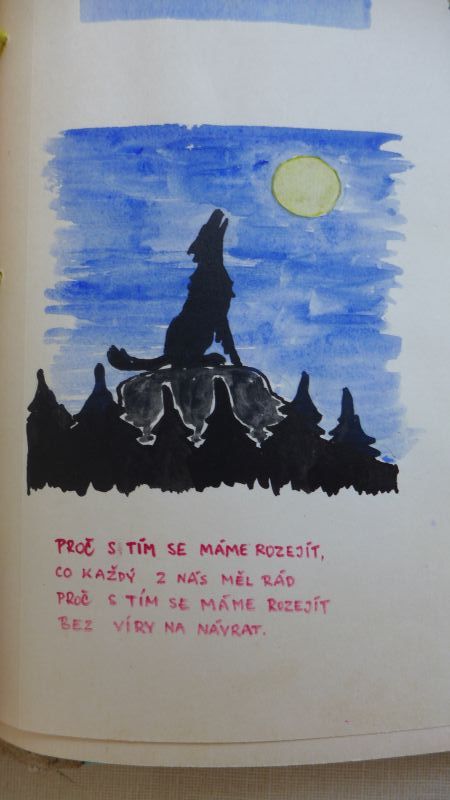 PROČ S TÍM SE MÁME ROZEJÍT,
CO KAŽDÝ Z NÁS MĚL RÁD
PROČ S TÍM SE MÁME ROZEJÍT
BEZ VÍRY NA NÁVRAT.